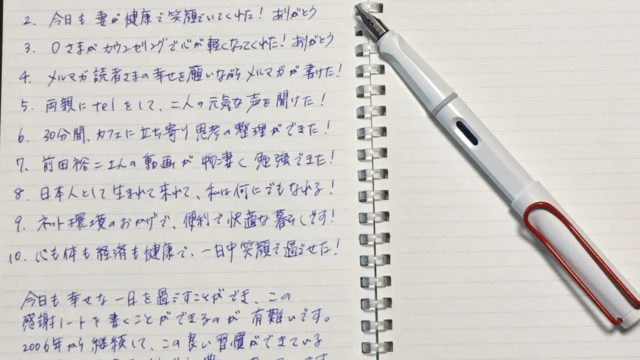 2. 今日も妻が健康で笑顔でいてくれた！ありがとう
3. Oさまがカウンセリングで心が軽くなってくれた！ありがとう
4. メルマガ読者さまの幸せを願いながらメルマガが書けた！
5. 両親にtelをして、二人の元気な声を聞けた！
6. 30分間、カフェに立ち寄り思考の整理ができた！
7. 前田裕二さんの動画が物凄く勉強できた！
8. 日本人として生まれて来れて、私は何にでもなれる！
9. ネット環境のおかげで、便利で快適な暮らしです！
10. 心も体も経済も健康で、一日中笑顔で過ごせた！
今日も幸せな一日を過ごすことができ、この
感謝ノートを書くことができるのが有難いです。
2006年から継続して、この良い習慣ができている